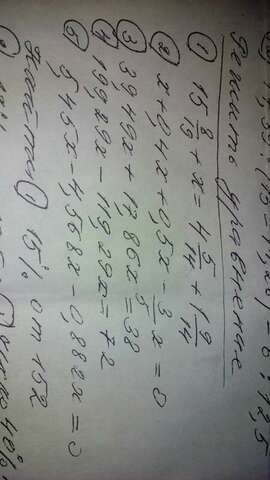 17,39 : (13 - 11,26) - 6 : 12,5
Решить уравнение
1) 15 8/19 + x = 4 5/14 + 1 9/14
2) x + 0,4x + 0,5x - 3/5 x = 0
3) 39,49x + 17,86x = 38
4) 199,29x - 119,29x = 72
5) 5,45x - 4,568x - 0,882x = 0
Найти 1) 15% от 152